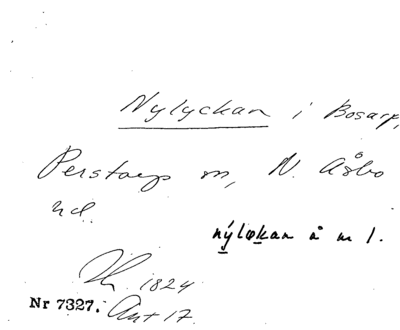 Nylyckan i Bosarp,
Perstorp sn, N. Åsbo
hd.
nýløkan å m 1.
1824
Nr 7327. Ant 17